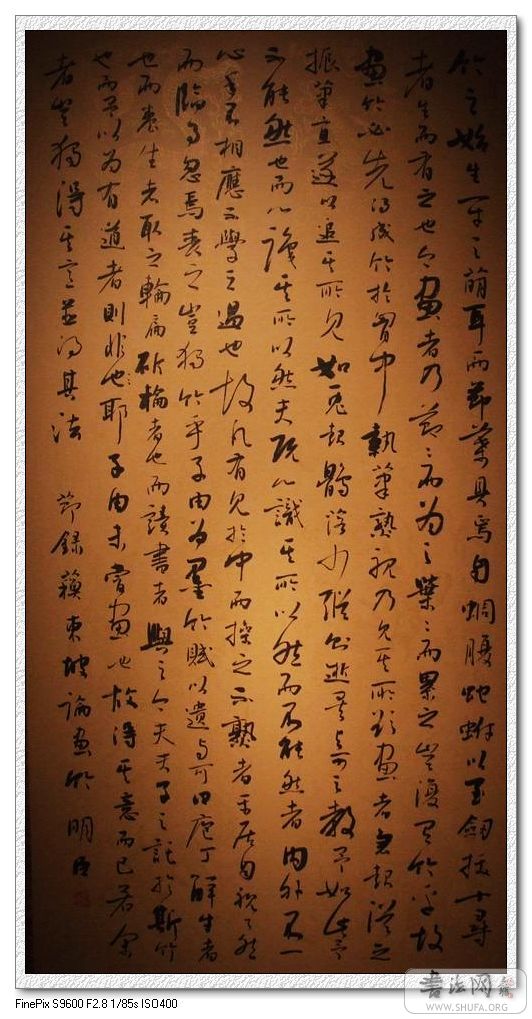 竹之始生一寸之萌耳而節葉具焉自蜩腹蛇蚹以至劍拔十尋
者生而有之也今畫者乃節〻而為之葉〻而累之豈復有竹乎故
畫竹必先得成竹於胷中執筆熟視乃見其所欲畫者急起從之
振筆直遂以追其所見如兔起鶻落少縱則逝矣與可之教予如此予
不能然也而心識其所以然夫既心識其所以然而不能然者內外不一
心手不相應不學之過也故凡有見於中而操之不熟者平居自視了然
而臨事忽焉喪之豈獨竹乎子由為墨竹賦以遺與可曰庖丁解牛者
也而養生者取之輪扁斫輪者也而讀書者與之今夫夫子之託於斯竹
也而予以為有道者則非也耶子由未嘗畫也故得其意而已若余
者豈獨得其意並得其法 節錄蘇東坡論畫竹 明
書法网
WWW.SHUFA.ORG
FinePix S9600 F2.8 1/85s ISO400